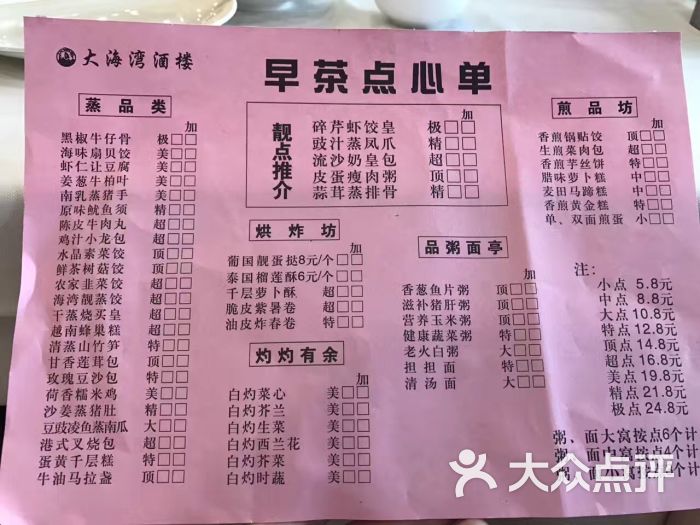 大海湾酒楼
早茶点心单
蒸品类
加
黑椒牛仔骨 极□□
海味扇贝饺 美□□
虾仁让豆腐 美□□
姜葱牛柏叶 美□□
南乳蒸猪手 美□□
原味鱿鱼须 精□□
陈皮牛肉丸 超□□
鸡汁小龙包 超□□
水晶素菜饺 顶□□
鲜茶树菇饺 顶□□
农家韭菜饺 超□□
海湾靓蒸饺 超□□
干蒸烧买皇 超□□
越南蜂巢糕 超□□
清蒸山竹笋 特□□
甘香莲茸包 特□□
玫瑰豆沙包 特□□
荷香糯米鸡 美□□
沙姜蒸猪肚 精□□
豆豉凌鱼蒸南瓜 大□□
港式叉烧包 超□□
蛋黄千层糕 特□□
牛油马拉盏 顶□□
靓点推介
加
碎芹虾饺皇 极□□
豉汁蒸凤爪 精□□
流沙奶皇包 超□□
皮蛋瘦肉粥 顶□□
蒜茸蒸排骨 精□□
烘炸坊
加
葡国靓蛋挞8元/个□□
泰国榴莲酥6元/个□□
千层萝卜酥 超□□
脆皮紫薯卷 超□□
油皮炸春卷 特□□
灼灼有余
加
白灼菜心 美□□
白灼芥兰 美□□
白灼生菜 美□□
白灼西兰花 美□□
白灼芥菜 美□□
白灼时蔬 美□□
品粥面亭
加
香葱鱼片粥 顶□□
滋补猪肝粥 顶□□
营养玉米粥 顶□□
健康蔬菜粥 顶□□
老火白粥 大□□
担担面 特□□
清汤面 大□□
煎品坊
加
香煎锅贴饺 顶□□
生煎菜肉包 超□□
香煎芋丝饼 特□□
腊味萝卜糕 中□□
麦田马蹄糕 中□□
香煎黄金糕 特□□
单、双面煎蛋 小□□
注:
小点 5.8元
中点 8.8元
大点 10.8元
特点 12.8元
顶点 14.8元
超点 16.8元
美点 19.8元
精点 21.8元
极点 24.8元
粥、面大窝按点6个计
粥、面中窝按点4个计
粥、面小窝按点
大众点评